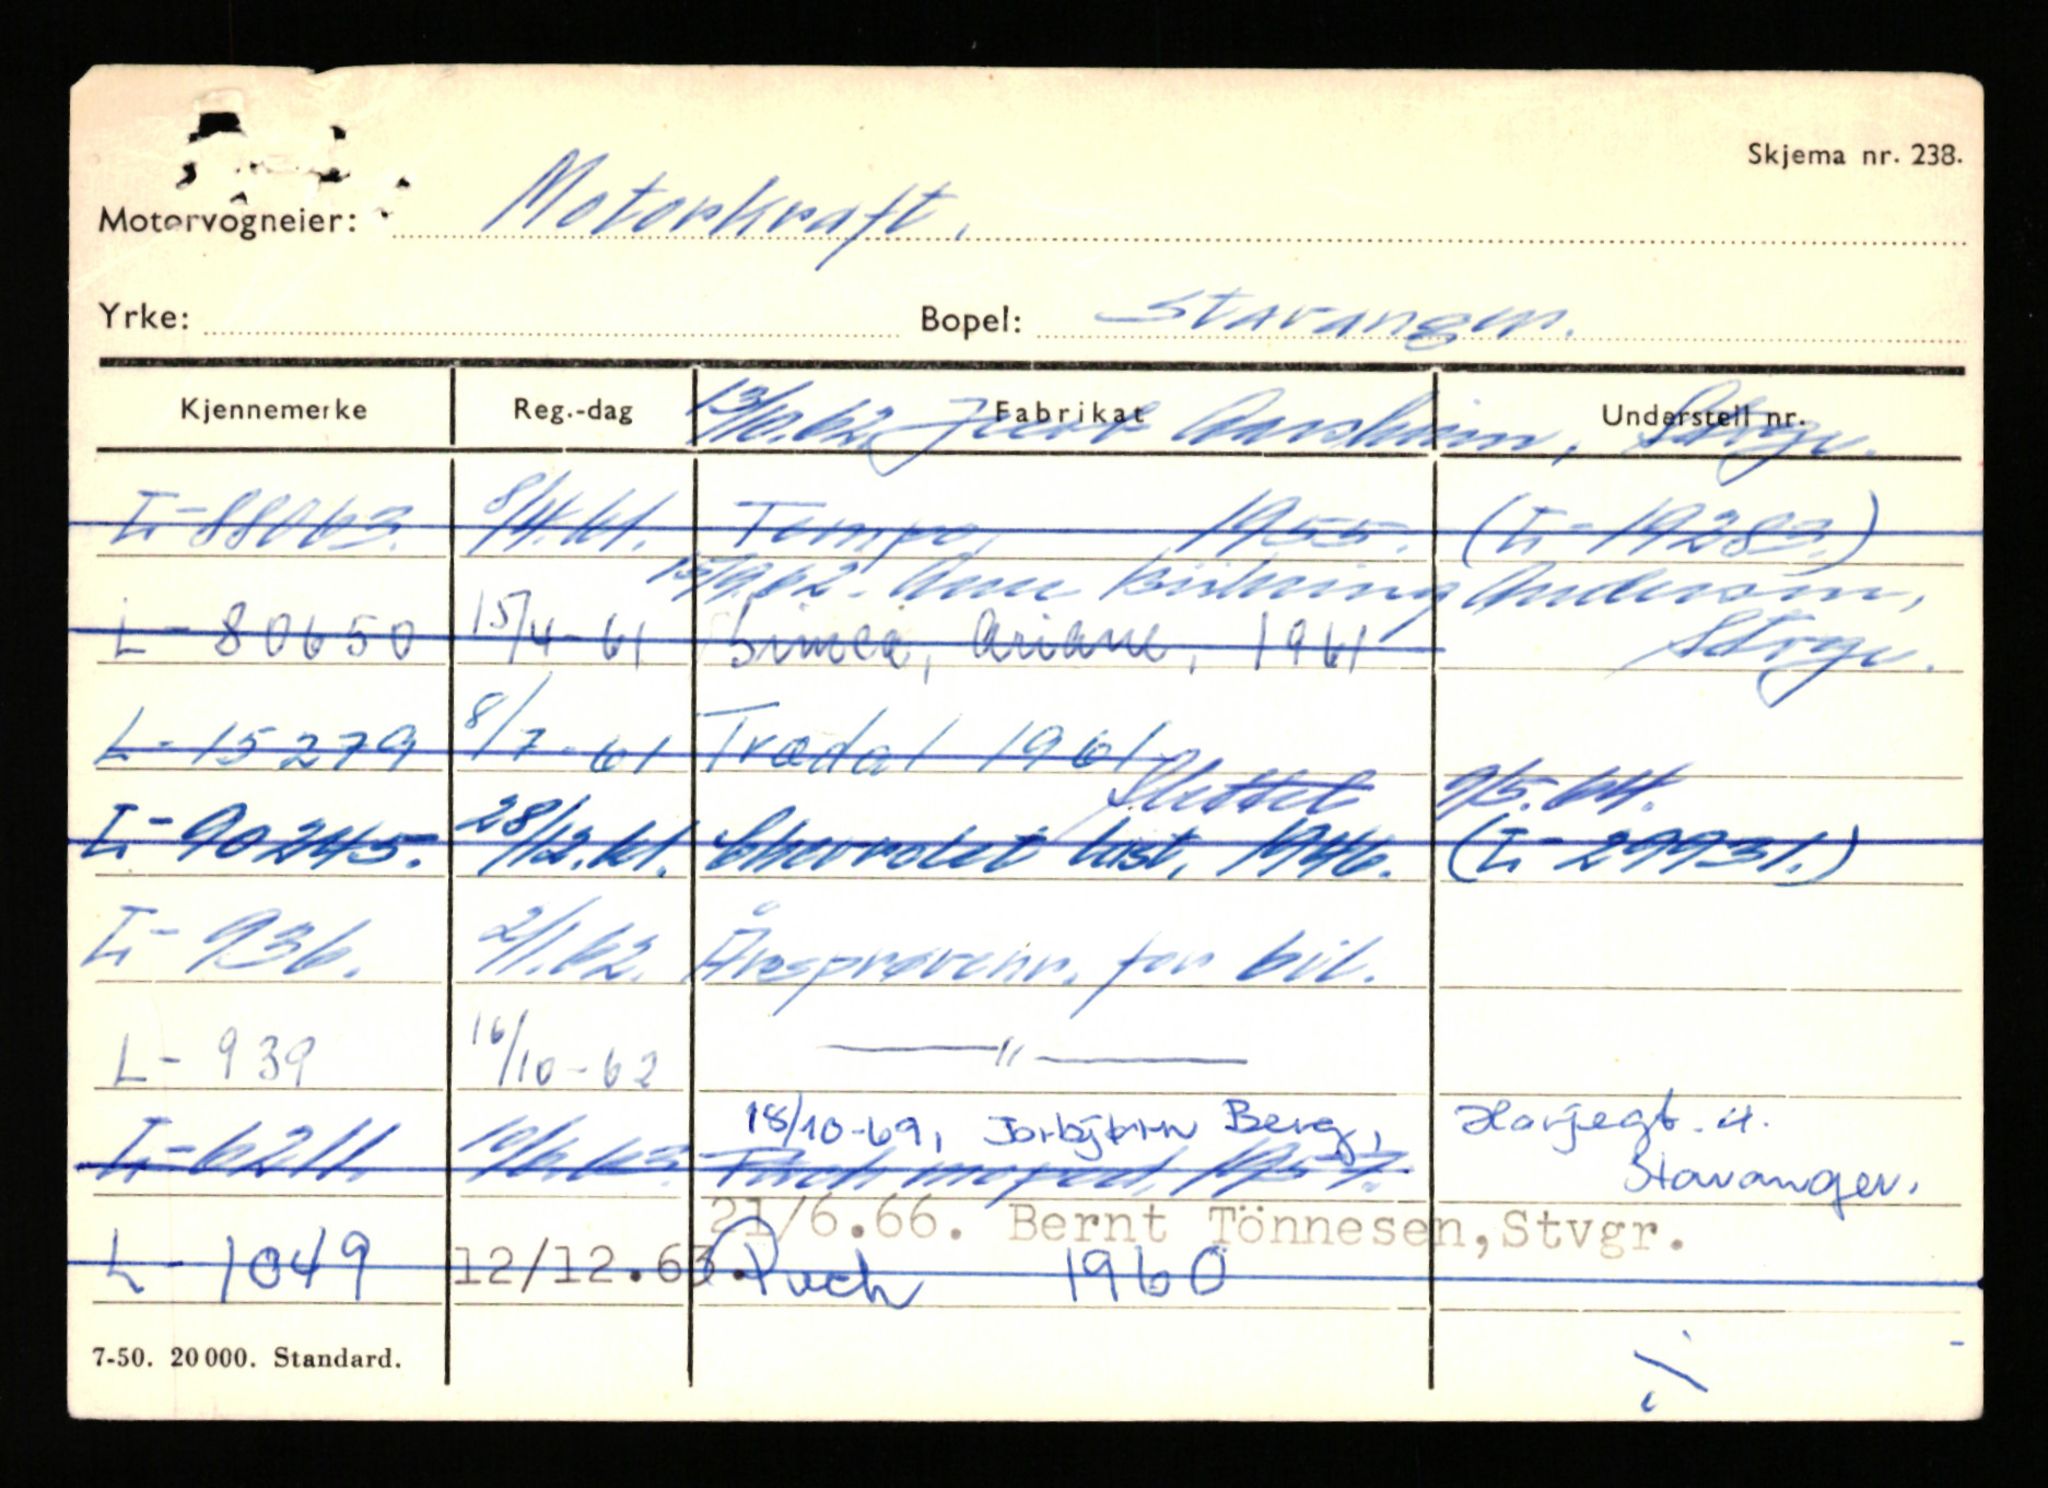 Skjema nr. 238.
Motorvogneier: Motorkraft.
Yrke: Bopel: Stavanger.
Kjennemerke Reg.-dag Fabrikat Understell nr.
13/10.62. Jacob Aarsheim, Stvgr.
L-88063. 8/4.61. Tempo, 1955. (L-19283.)
Anne Andersen,
L-80650 15/4-61 Simca, Ariane, 1961 Stvgr.
L-15279 8/7-61 Trædal 1961
Slettet 9/5.64.
L-90245. 28/12.61. Chevrolet last, 1946. (L-29931.)
L-936. 2/1.62. Årsprøvenr. for bil.
L-939 16/10-62 — " —
18/10-69, Torbjørn Berg,
L-6211. 10/6.63. Puch moped, 1957. Stavanger.
21/6.66. Bernt Tönnesen, Stvgr.
L-1049 12/12.63. Puch 1960
7-50. 20 000. Standard.